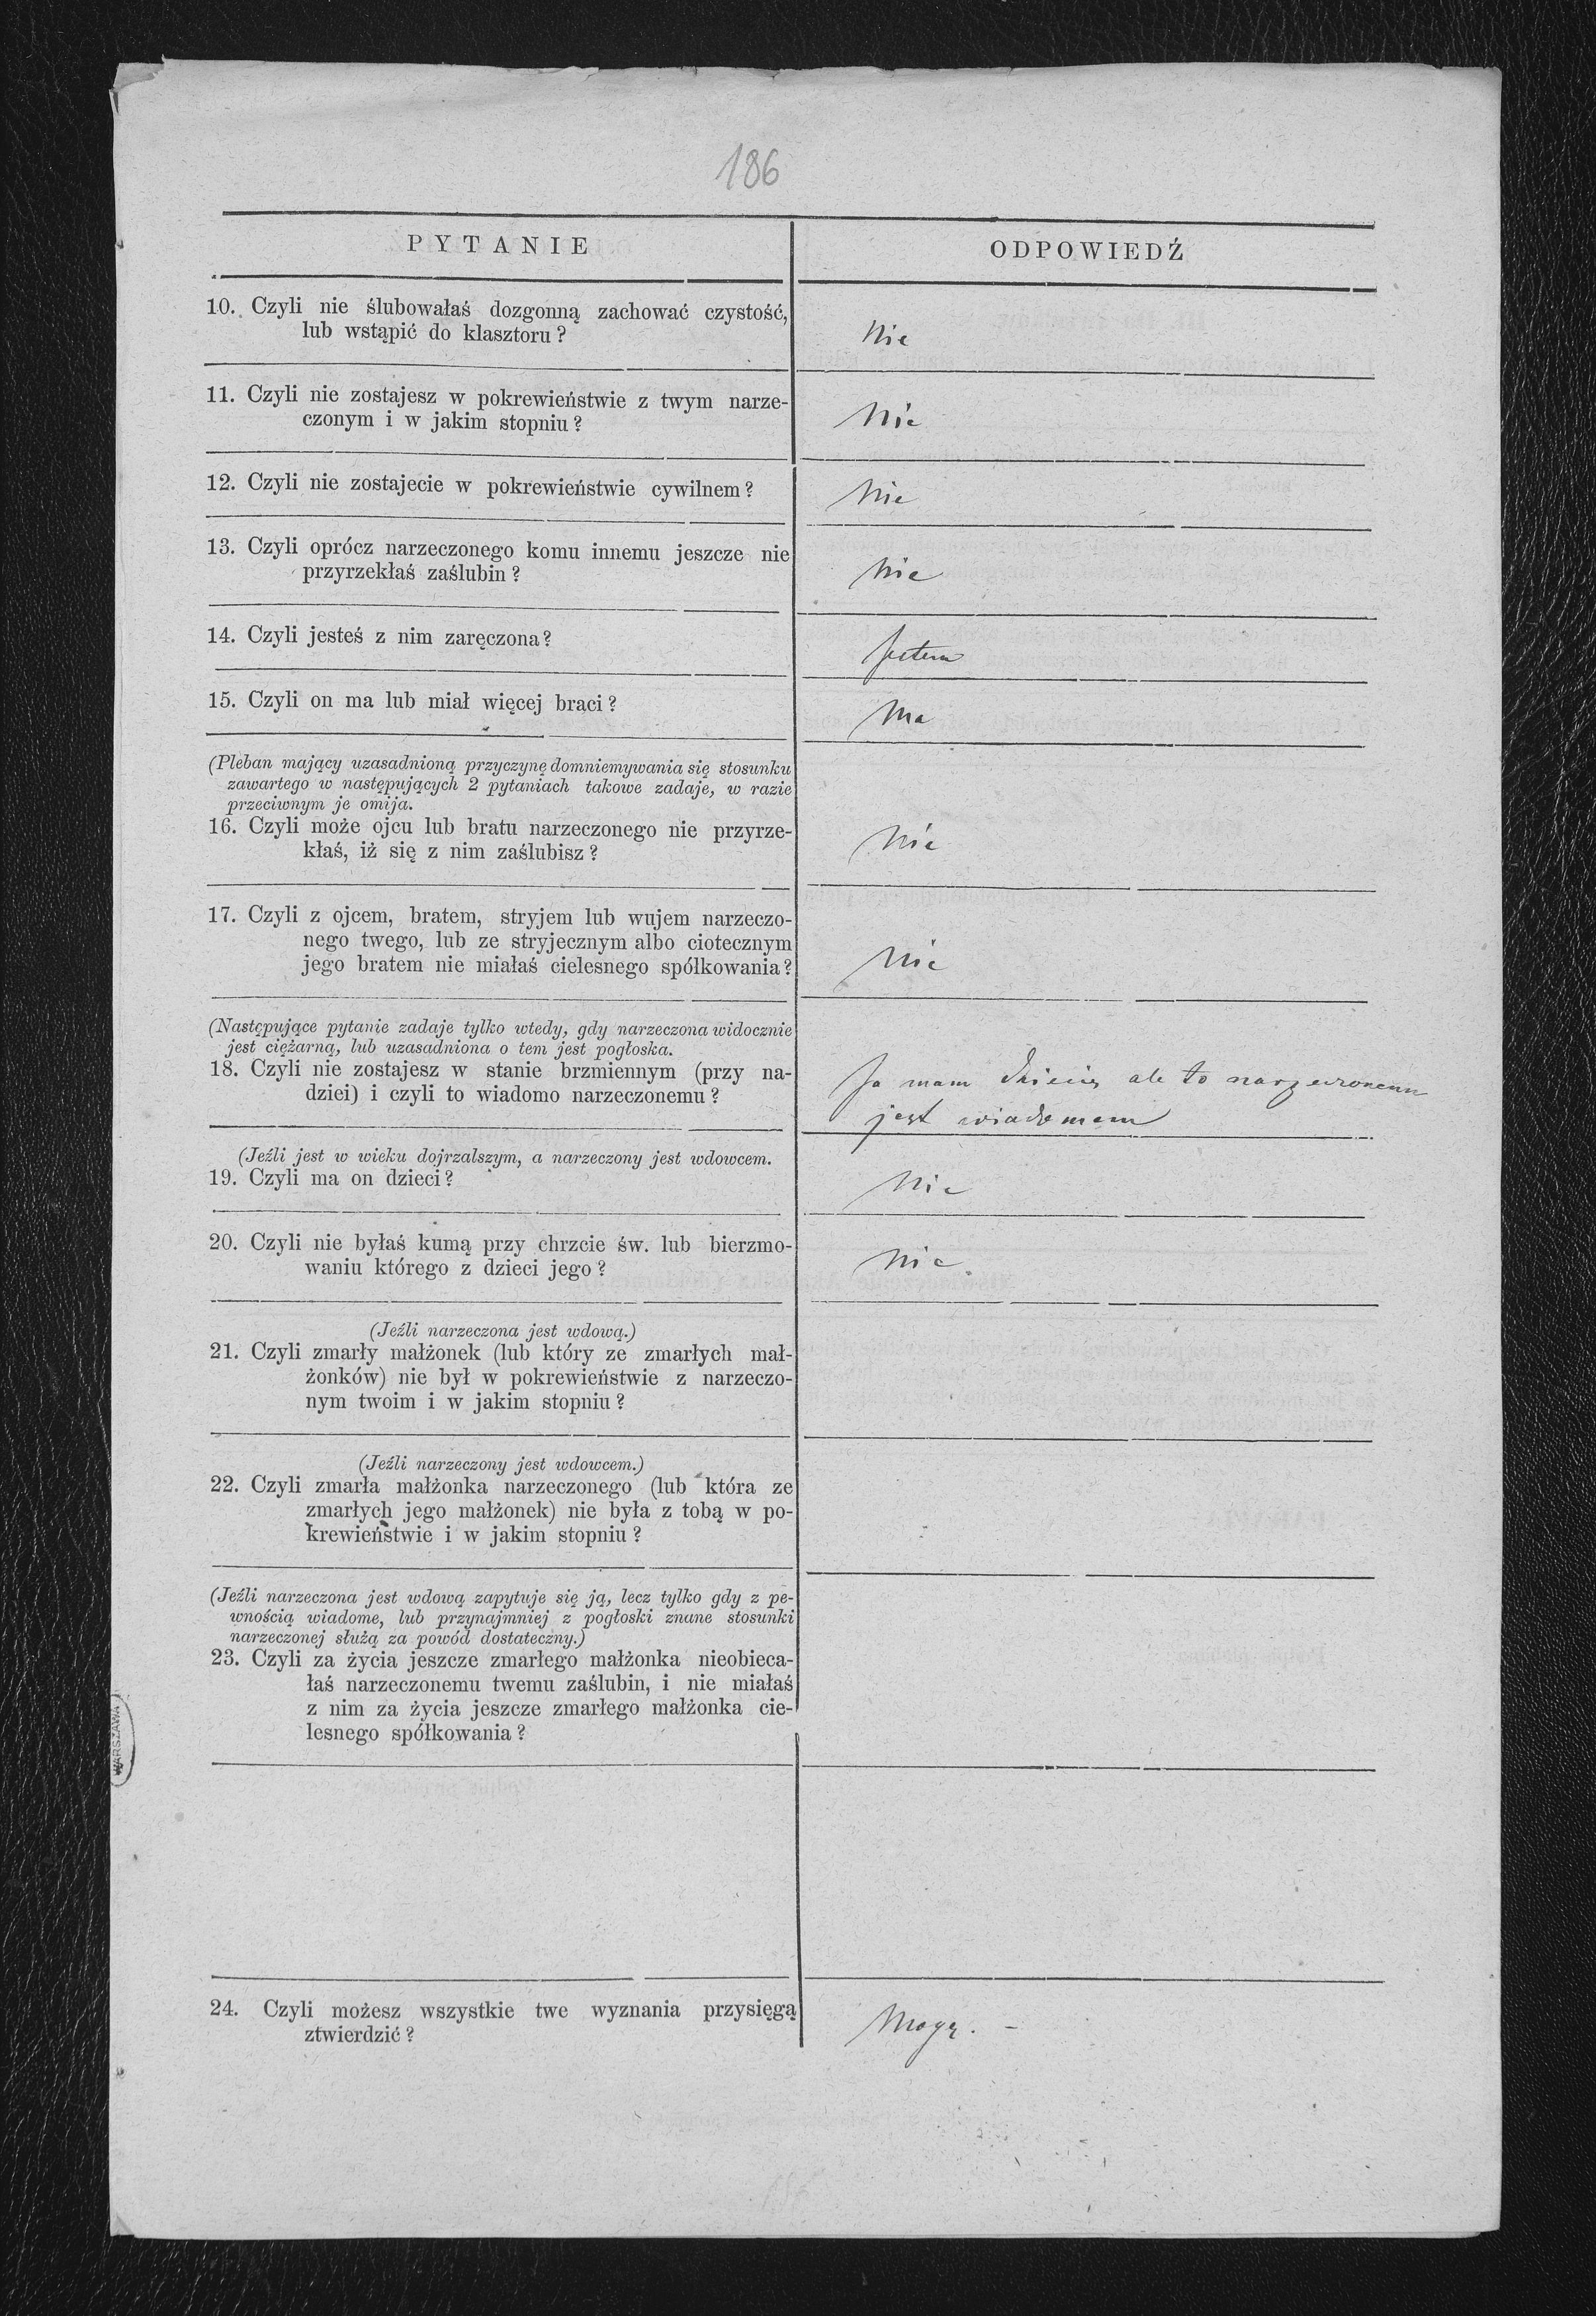 186
PYTANIE
ODPOWIEDŹ
10. Czyli nie ślubowałaś dozgonną zachować czystość,
lub wstąpić do klasztoru?
Nie
11. Czyli nie zostajesz w pokrewieństwie z twym narze-
czonym i w jakim stopniu?
Nie
12. Czyli nie zostajecie w pokrewieństwie cywilnem?
Nie
13. Czyli oprócz narzeczonego komu innemu jeszcze nie
przyrzekłaś zaślubin?
Nie
14. Czyli jesteś z nim zaręczona?
Jestem
15. Czyli on ma lub miał więcej braci?
Ma
(Pleban mający uzasadnioną przyczynę domniemywania się stosunku
zawartego w następujących 2 pytaniach takowe zadaje, w razie
przeciwnym je omija.
16. Czyli może ojcu lub bratu narzeczonego nie przyrze-
kłaś, iż się z nim zaślubisz?
Nie
17. Czyli z ojcem, bratem, stryjem lub wujem narzeczo-
nego twego, lub ze stryjecznym albo ciotecznym
jego bratem nie miałaś cielesnego spółkowania?
Nie
(Następujące pytanie zadaje tylko wtedy, gdy narzeczona widocznie
jest ciężarną, lub uzasadniona o tem jest pogłoska.
18. Czyli nie zostajesz w stanie brzmiennym (przy na-
dziei) i czyli to wiadomo narzeczonemu?
Ja mam dziecię ale to narzeczonemu
jest wiadomem
(Jeźli jest w wieku dojrzalszym, a narzeczony jest wdowcem.
19. Czyli ma on dzieci?
Nie
20. Czyli nie byłaś kumą przy chrzcie św. lub bierzmo-
waniu którego z dzieci jego?
Nie
(Jeźli narzeczona jest wdową.)
21. Czyli zmarły małżonek (lub który ze zmarłych mał-
żonków) nie był w pokrewieństwie z narzeczo-
nym twoim i w jakim stopniu?
(Jeźli narzeczony jest wdowcem.)
22. Czyli zmarła małżonka narzeczonego (lub która ze
zmarłych jego małżonek) nie była z tobą w po-
krewieństwie i w jakim stopniu?
(Jeźli narzeczona jest wdową zapytuje się ją, lecz tylko gdy z pe-
wnością wiadome, lub przynajmniej z pogłoski znane stosunki
narzeczonej służą za powód dostateczny.)
23. Czyli za życia jeszcze zmarłego małżonka nieobieca-
łaś narzeczonemu twemu zaślubin, i nie miałaś
z nim za życia jeszcze zmarłego małżonka cie-
lesnego spółkowania?
WARSZAWA
24. Czyli możesz wszystkie twe wyznania przysięgą
ztwierdzić?
Mogę. -